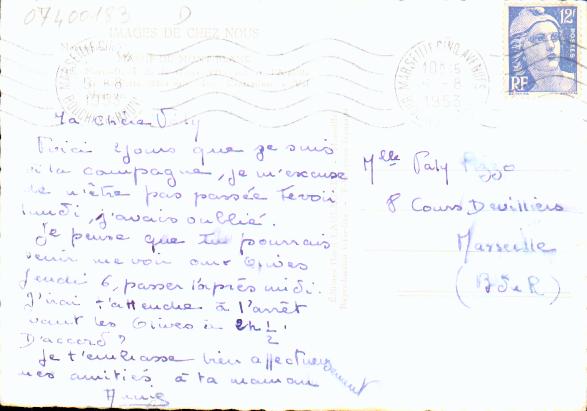 07400183 D
IMAGES DE CHEZ NOUS
Ma chère
Voici 2 jours que je suis
à la campagne, je m'excuse
de n'être pas passée te voir
lundi, j'avais oublié.
Je pense que tu pourrais
venir me voir aux Olives
jeudi 6, passer l'après midi.
J'irai t'attendre à l'arrêt
vant les Olives à 2h 1/2.
D'accord?
Je t'embrasse bien affectueusement
mes amitiés à ta maman
Annie
Mlle Paly
8 Cours Devilliers
Marseille
(B d R)
12F
POSTES
RF
MARSEILLE CINQ AVENUES
8
1953